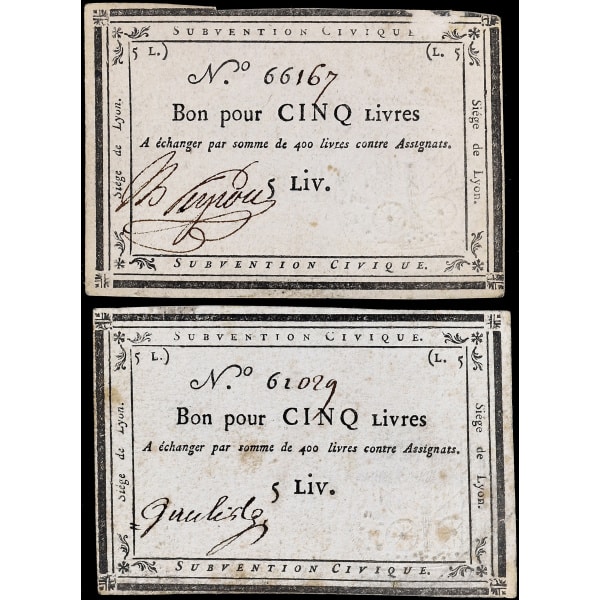 SUBVENTION CIVIQUE.
5 L.) (L. 5
N.o 66167
Bon pour CINQ LIVRES
A échanger par somme de 400 livres contre Assignats.
5 LIV.
Siége de Lyon.
Siége de Lyon.
SUBVENTION CIVIQUE.
SUBVENTION CIVIQUE.
5 L.) (L. 5
N.o 61029
Bon pour CINQ LIVRES
A échanger par somme de 400 livres contre Assignats.
5 LIV.
Siége de Lyon.
Siége de Lyon.
SUBVENTION CIVIQUE.